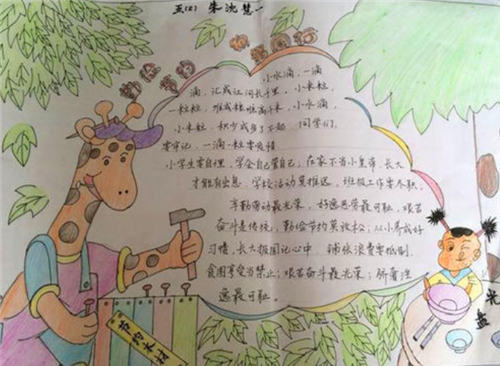 五(2) 朱沈慧一
勤俭节约 伴我同行
小水滴,一滴
滴,汇成江河长千里。小米粒,
一粒粒,堆成粮堆高千米。小水滴,
小米粒,积少成多了不起。同学们,
要牢记,一滴一粒要爱惜
小学生要自理,学会自己管自己,在家不当小皇帝,长大
才能有出息。学校活动莫推迟,班级工作要尽职。
辛勤劳动最光荣,好逸恶劳最可耻。艰苦
奋斗是传统,勤俭节约莫放松;从小养成好
习惯,长大报国记心中,铺张浪费要抵制,
贪图享受当禁止;艰苦奋斗最光荣;骄奢淫
逸最可耻。
节约木材
盘